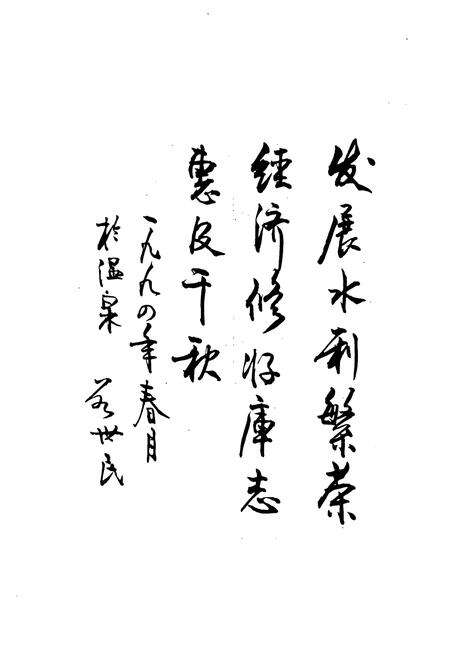 发展水利繁荣
经济修好庫志
惠及千秋
一九九四年春月
於温泉
世民